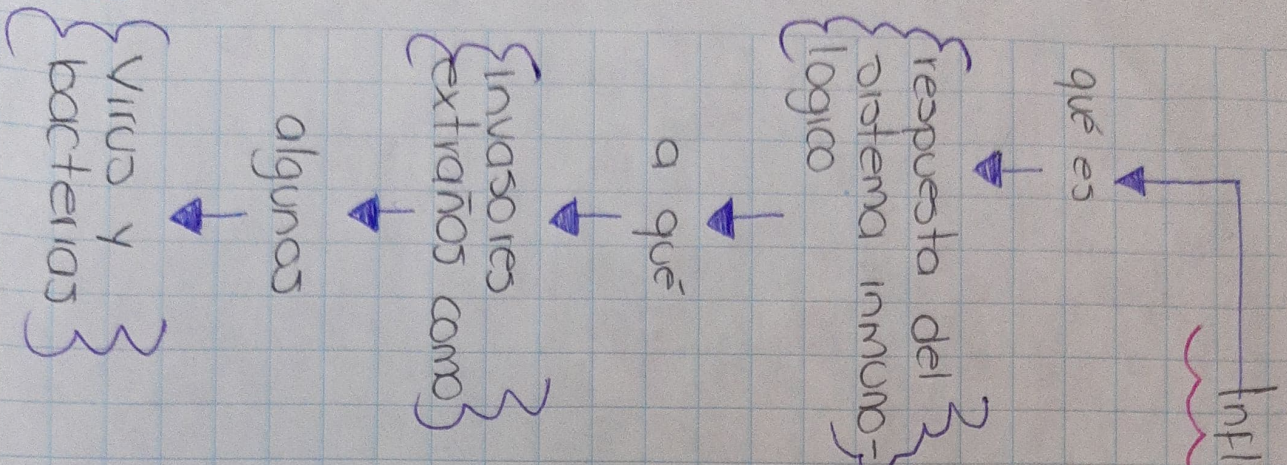 Infl
qué es
respuesta del
sistema inmuno-
lógico
a qué
invasores
extraños como
algunas
virus y
bacterias